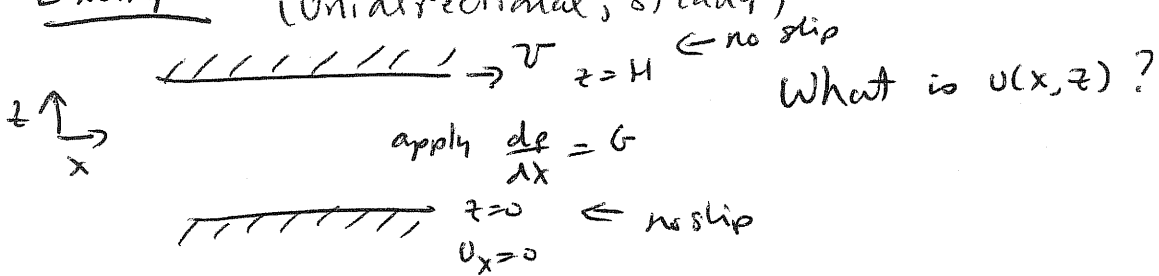 (Unidirectional, steady)
→ U z = H ← no slip
What is u(x,z)?
z
x
apply dp/dx = G
z=0 ← no slip
Ux=0